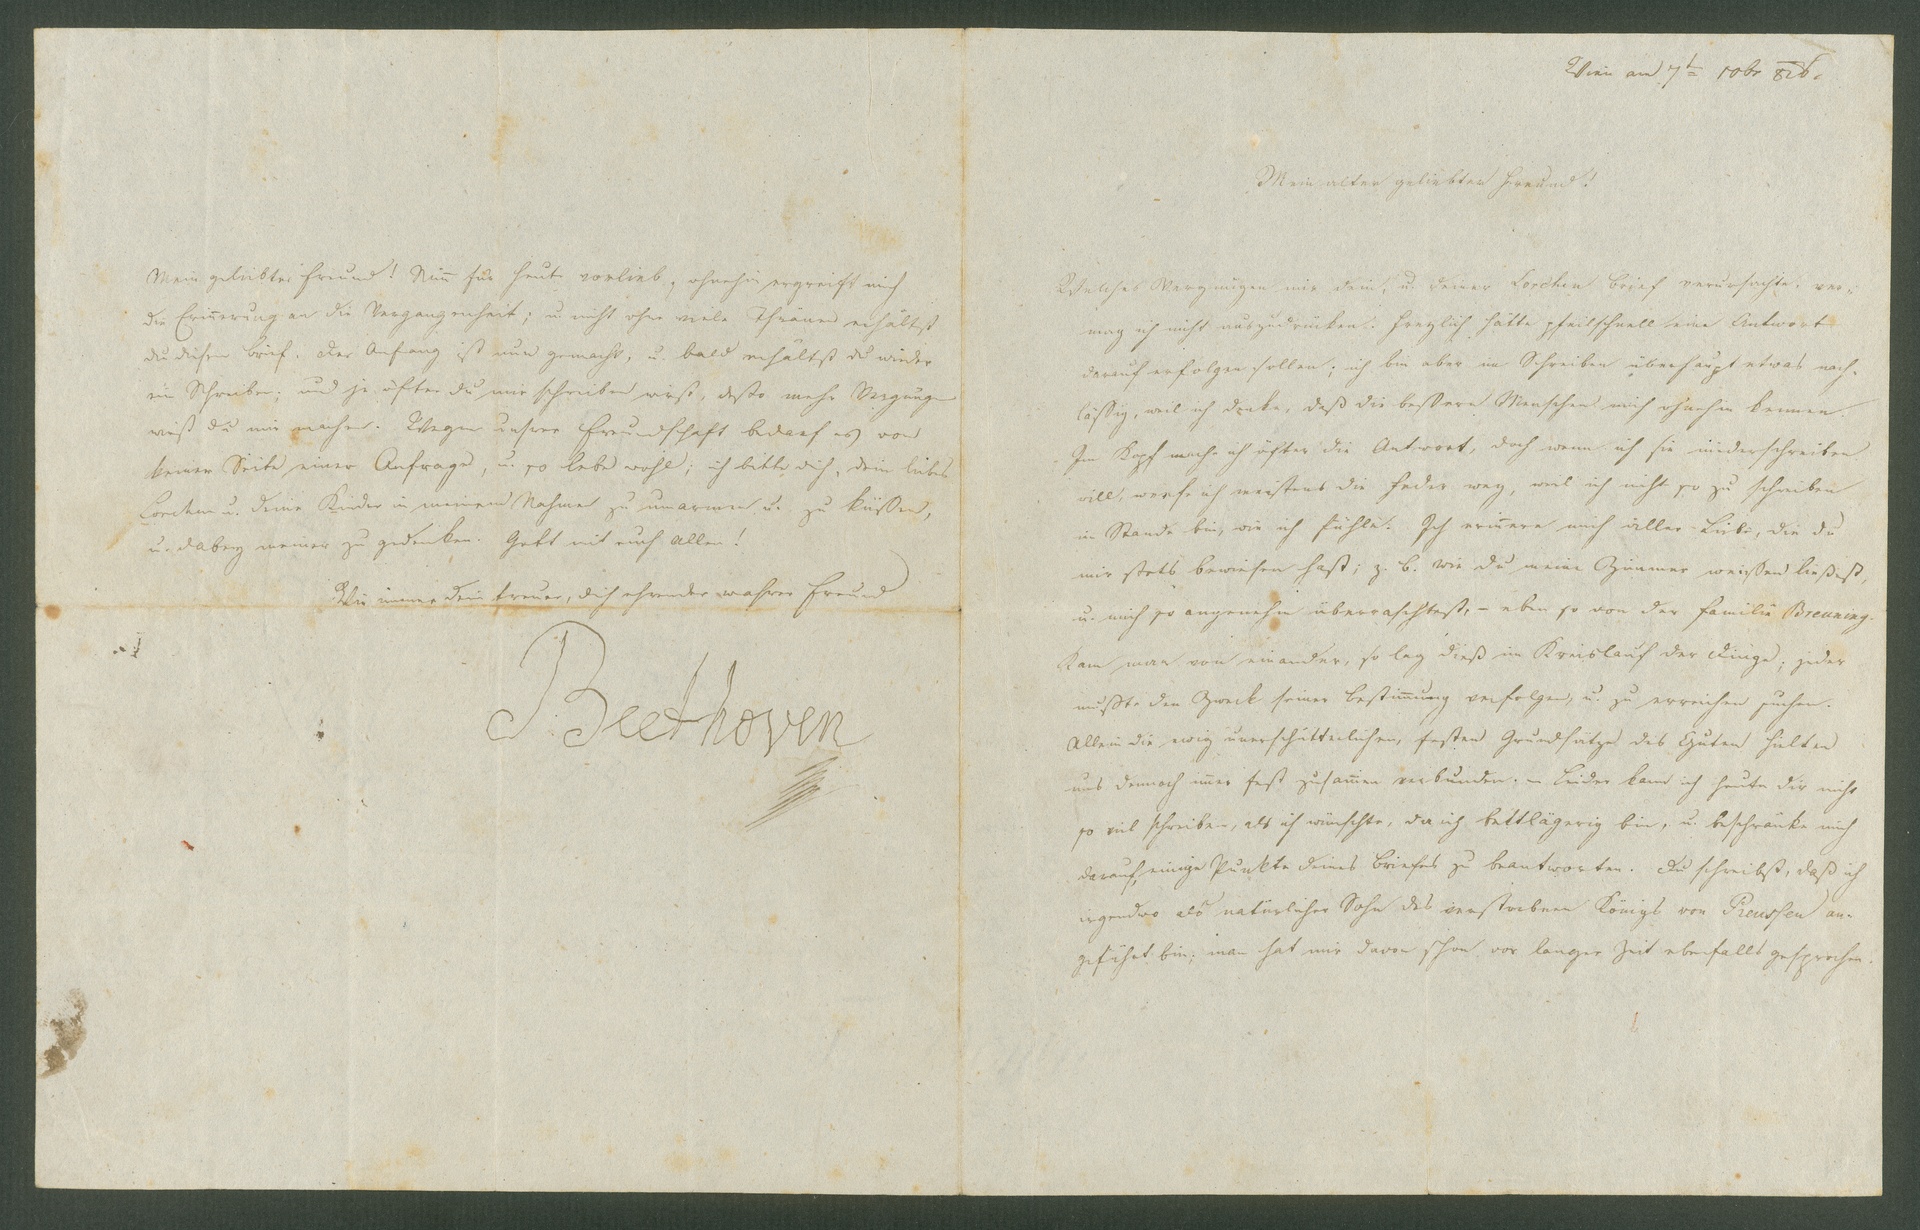 Wien am 7t 10br 826.
Mein alter geliebter Freund!
Welches Vergnügen mir dein, u. deiner Lorchen Brief verursachte, ver-
mag ich nicht auszudrücken. Freylich hätte pfeilschnell eine Antwort
darauf erfolgen sollen; ich bin aber im Schreiben überhaupt etwas nach-
lässig, weil ich denke, daß die bessern Menschen mich ohnehin kennen.
Im Kopf mache ich öfter die Antwort, doch wenn ich sie niederschreiben
will, werfe ich meistens die Feder weg, weil ich nicht so zu schreiben
im Stande bin, wie ich fühle. Ich erinnere mich aller Liebe, die du
mir stets bewiesen hast; z. B. wie du mein Zimmer weissen ließest,
u. mich so angenehm überraschtest, – eben so von der Familie Breuning.
Kam man von einander, so lag dieß im Kreislauf der Dinge; jeder
mußte den Zweck seiner Bestimmung verfolgen, u. zu erreichen suchen.
Allein die ewig unerschütterlichen, festen Grundsätze des Guten hielten
uns dennoch immer fest zusammen verbunden. – Leider kann ich heute dir nicht
so viel schreiben, als ich wünschte, da ich bettlägerig bin, u. beschränke mich
darauf, einige Punkte deines Briefes zu beantworten. Du schreibst, daß ich
irgendwo als natürlicher Sohn des verstorbnen Königs von Preussen an-
geführt bin; man hat mir davon schon vor langer Zeit ebenfalls gesprochen.
Mein geliebter Freund! Nimm für heute vorlieb, ohnehin ergreift mich
die Erinnerung an die Vergangenheit; u. nicht ohne viele Thränen erhältst
du diesen Brief. Der Anfang ist nun gemacht, u. bald erhältst du wieder
ein Schreiben; und je öfter du mir schreiben wirst, desto mehr Vergnügen
wirst du mir machen. Wegen unsrer Freundschaft bedarf es von
keiner Seite einer Anfrage, u. so lebe wohl; ich bitte dich, dein liebes
Lorchen u. deine Kinder in meinem Nahmen zu umarmen u. zu küssen,
u. dabey meiner zu gedenken. Gott mit euch allen!
Wie immer dein treuer, dich ehrender wahrer Freund
Beethoven